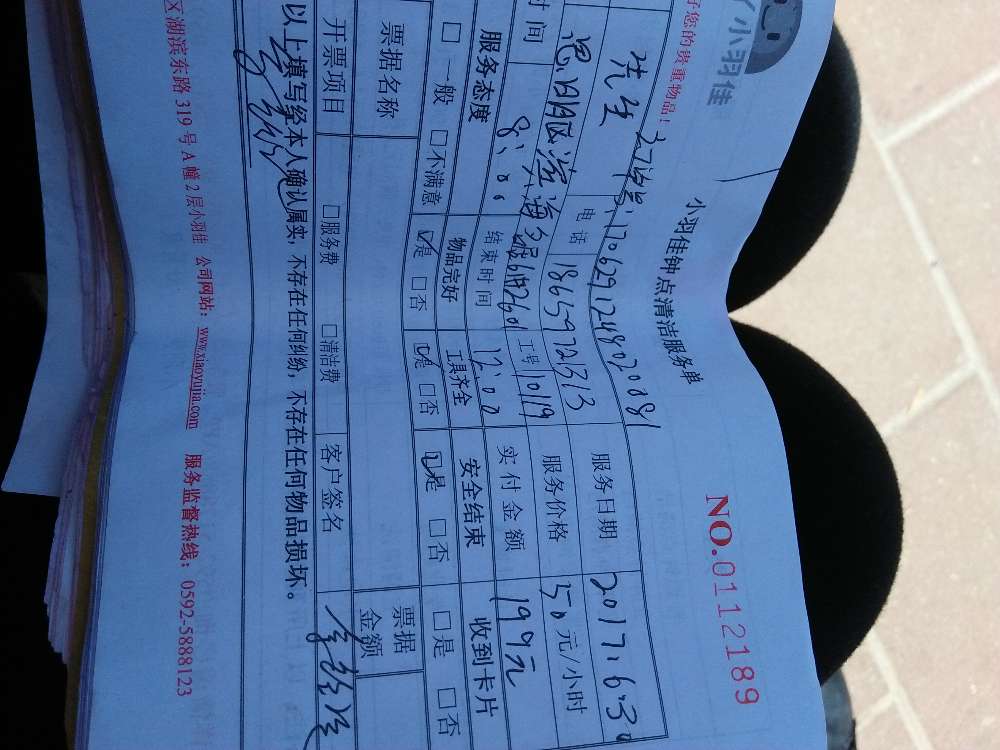 小羽佳
好您的贵重物品!
小羽佳钟点清洁服务单
NO.0112189
订单号:170629124802081
先生 电话 1865972313 服务日期 2017.6.30
工号 10119 服务价格 50元/小时
时间 8:00 结束时间 12:00 实付金额 199元
服务态度 物品完好 工具齐全 安全结束 收到卡片
□一般 □不满意 ☑是 □否 ☑是 □否 ☑是 □否 □是 □否
票据名称 票据金额
开票项目 □服务费 □清洁费 客户签名
以上填写经本人确认属实,不存在任何纠纷,不存在任何物品损坏。
区湖滨东路319号A幢2层小羽佳 公司网站:www.xiaoyujia.com 服务监督热线:0592-5888123